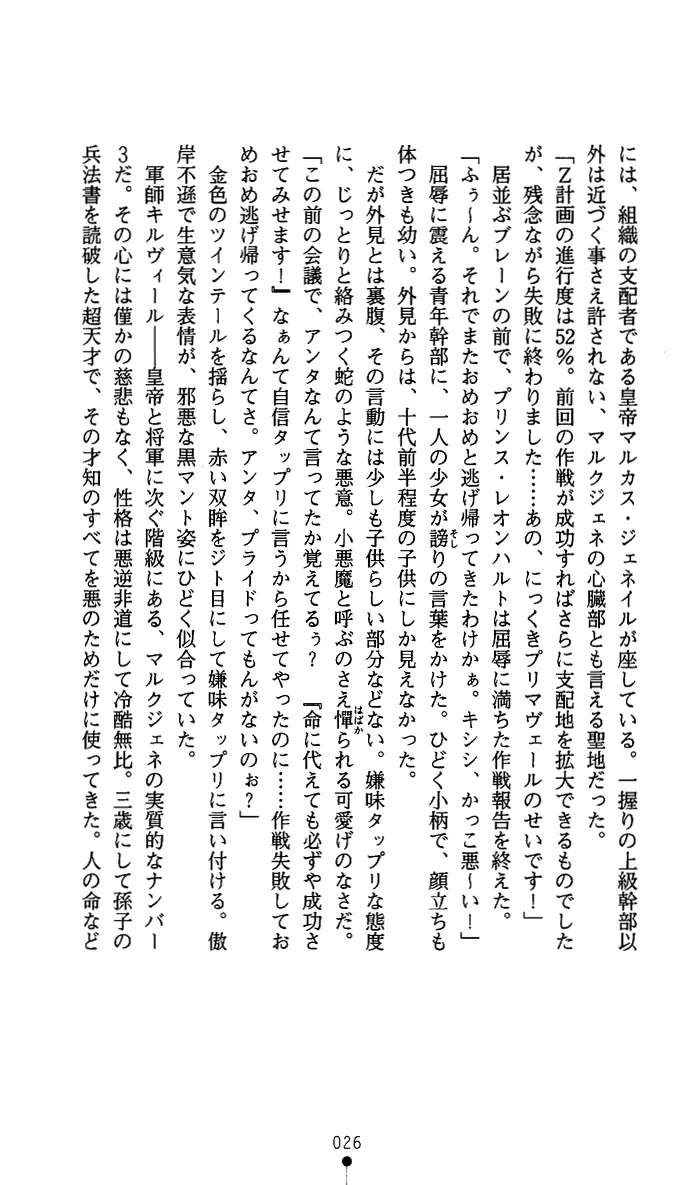 には、組織の支配者である皇帝マルカス・ジェネイルが座している。一握りの上級幹部以
外は近づく事さえ許されない、マルクジェネの心臓部とも言える聖地だった。
「Z計画の進行度は52%。前回の作戦が成功すればさらに支配地を拡大できるものでした
が、残念ながら失敗に終わりました……あの、にっくきプリマヴェールのせいです！」
居並ぶブレーンの前で、プリンス・レオンハルトは屈辱に満ちた作戦報告を終えた。
「ふぅ〜ん。それでまたおめおめと逃げ帰ってきたわけかぁ。キシシ、かっこ悪〜い！」
屈辱に震える青年幹部に、一人の少女が謗りの言葉をかけた。ひどく小柄で、顔立ちも
体つきも幼い。外見からは、十代前半程度の子供にしか見えなかった。
だが外見とは裏腹、その言動には少しも子供らしい部分などない。嫌味タップリな態度
に、じっとりと絡みつく蛇のような悪意。小悪魔と呼ぶのさえ憚られる可愛げのなさだ。
「この前の会議で、アンタなんて言ってたか覚えてるぅ？　『命に代えても必ずや成功さ
せてみせます！』なぁんて自信タップリに言うから任せてやったのに……作戦失敗してお
めおめ逃げ帰ってくるなんてさ。アンタ、プライドってもんがないのぉ？」
金色のツインテールを揺らし、赤い双眸をジト目にして嫌味タップリに言い付ける。傲
岸不遜で生意気な表情が、邪悪な黒マント姿にひどく似合っていた。
軍師キルヴィール――皇帝と将軍に次ぐ階級にある、マルクジェネの実質的なナンバー
3だ。その心には僅かの慈悲もなく、性格は悪逆非道にして冷酷無比。三歳にして孫子の
兵法書を読破した超天才で、その才知のすべてを悪のためだけに使ってきた。人の命など
026